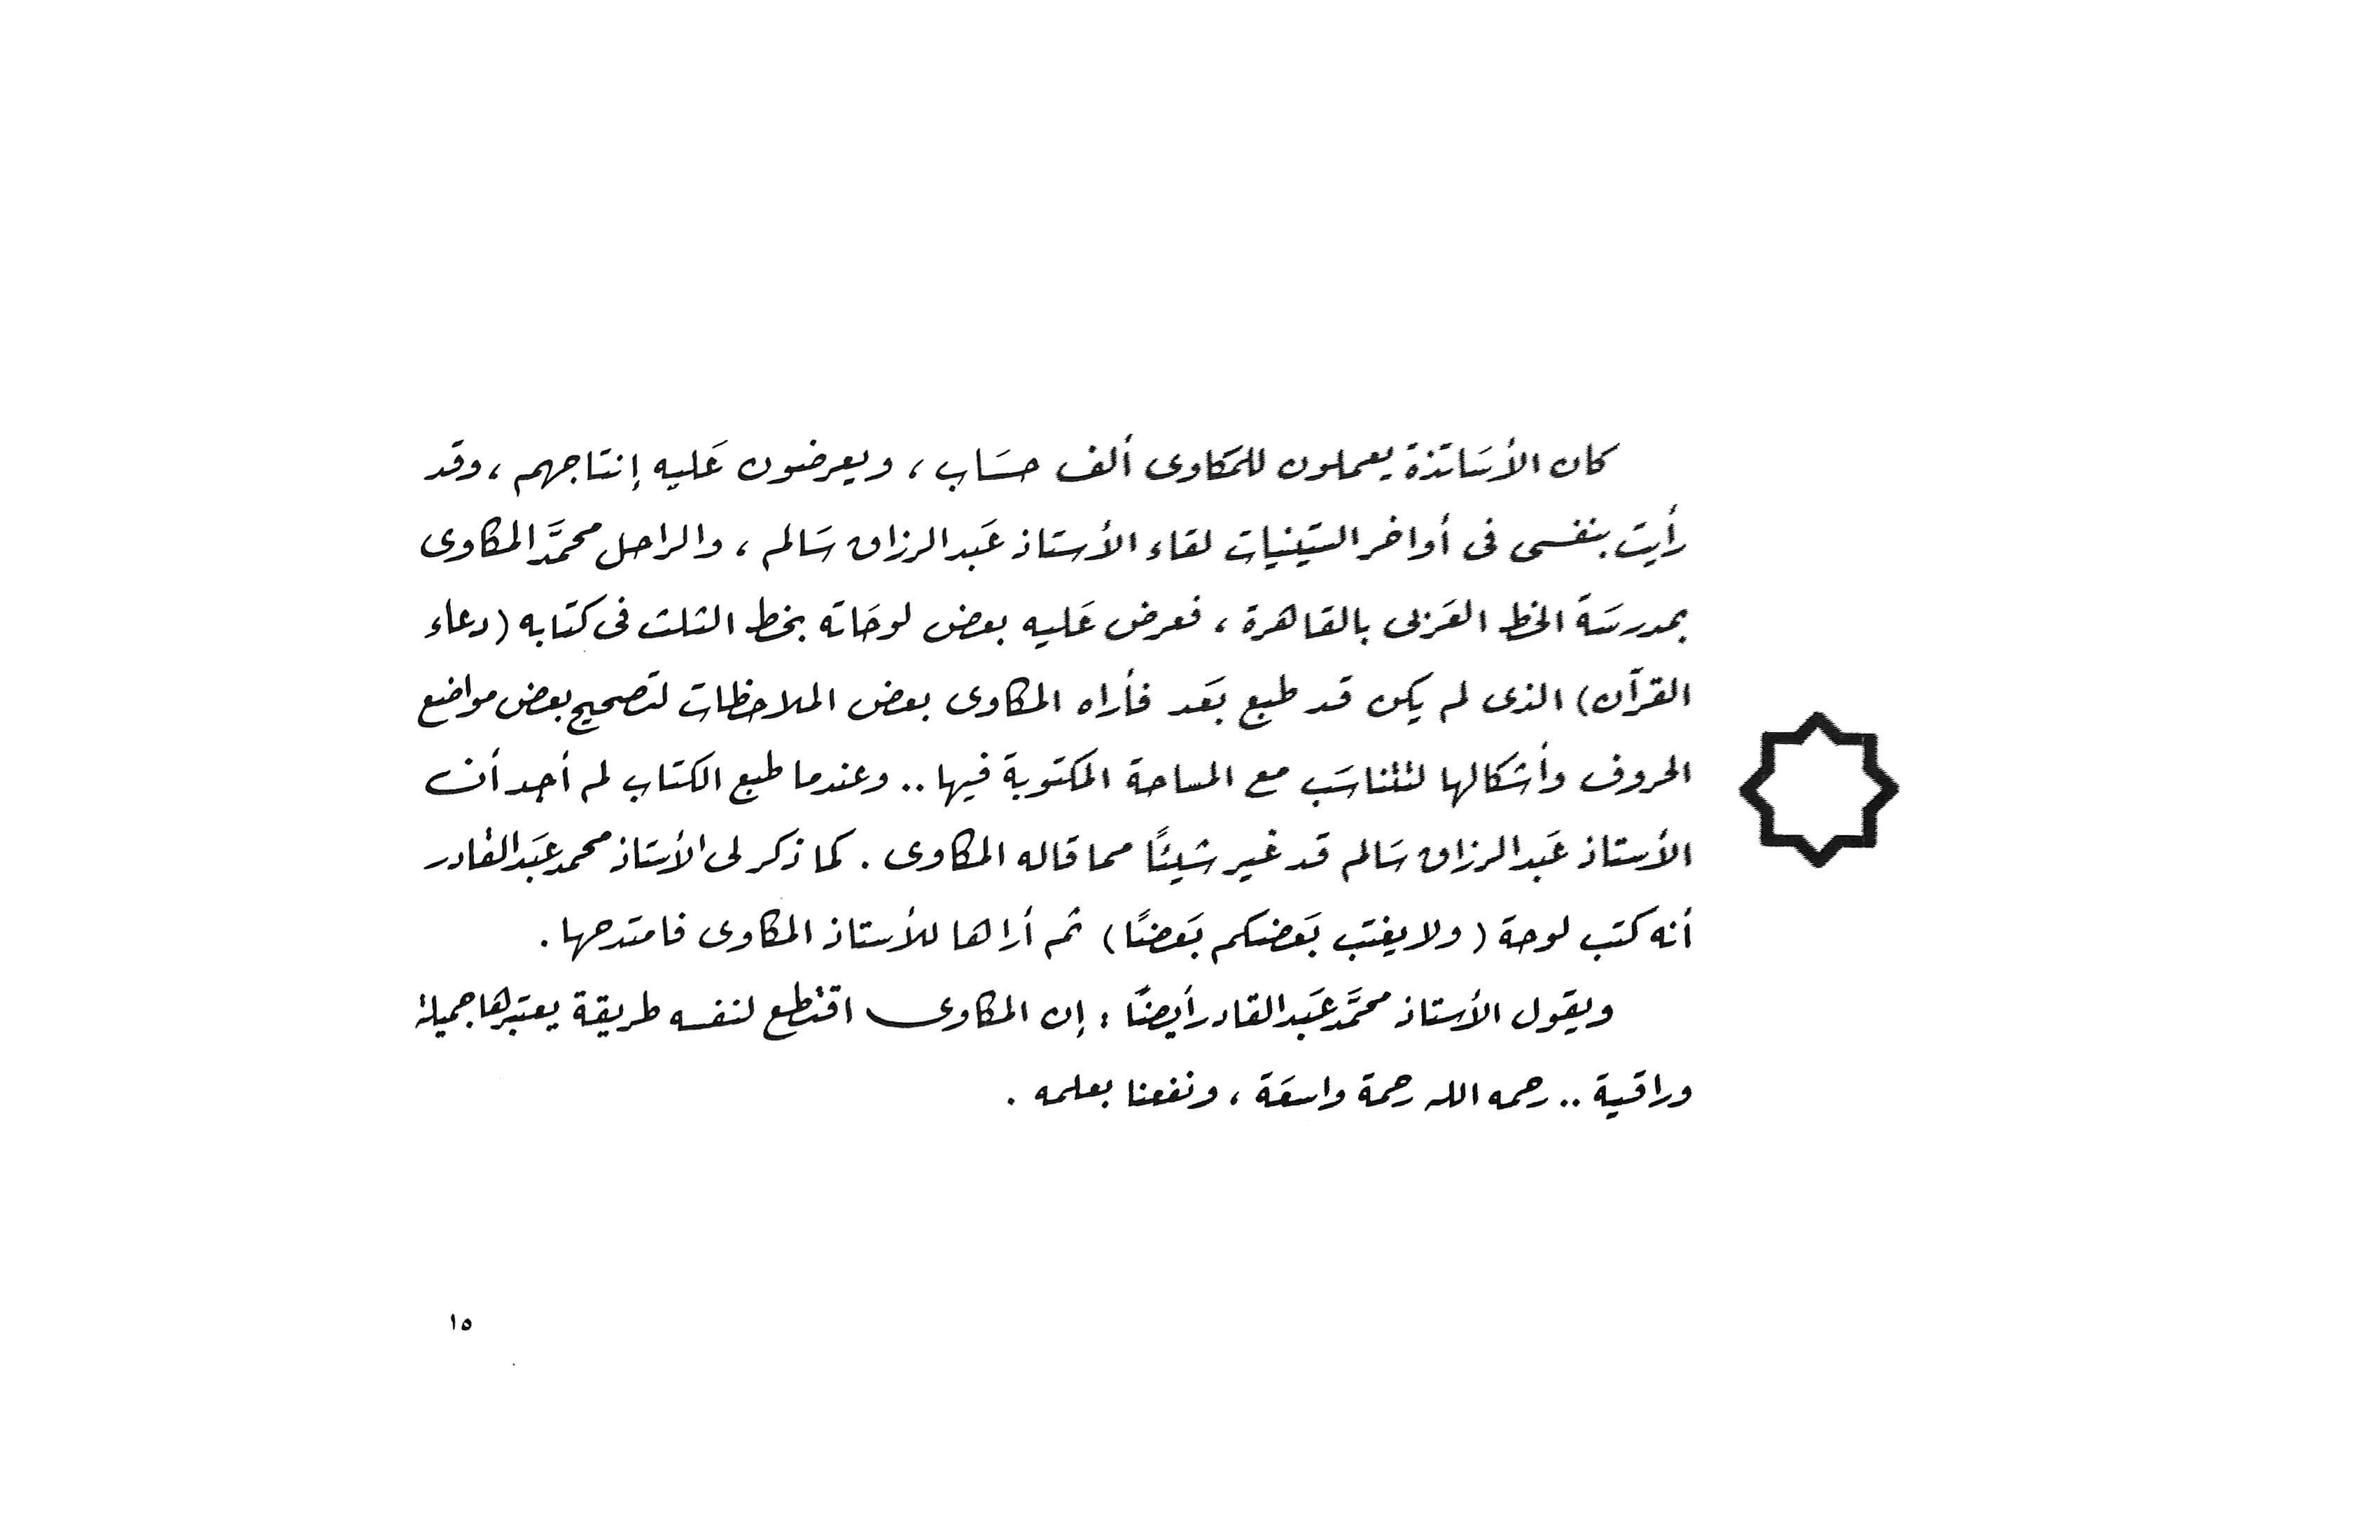 كان الأسَاتذة يعملون للمكاوى ألف حسَاب ، ويعرضون عَليه إنتاجهم ، وقد
رأيت بنفسى فى أواخر الستينيات لقاء الأستاذ عَبد الرزاق سَالم ، والراحل محمَّد المكاوى
بمدرسَة الخط العَربى بالقاهرة ، فعرض عَليه بعض لوحَاته بخط الثلث فى كتابه (دعاء
القرآن) الذى لم يكن قد طبع بَعد فأراه المكاوى بعض الملاحظات لتصحيح بعض مواضع
الحروف وأشكالها لتتناسَب مع المساحة المكتوبة فيها .. وعندما طبع الكتاب لم أجد أن
الأستاذ عَبد الرزاق سَالم قد غير شيئًا مما قاله المكاوى . كما ذكر لى الأستاذ محمد عَبد القادر
أنه كتب لوحة ( ولا يغتب بَعضكم بَعضًا ) ثم أراها للأستاذ المكاوى فامتدحها .
ويقول الأستاذ محمَّد عَبد القادر أيضًا : إن المكاوى اقتطع لنفسه طريقة يعتبرها جميلة
وراقية .. رحمه الله رحمة واسعَة ، ونفعنا بعلمه .
١٥